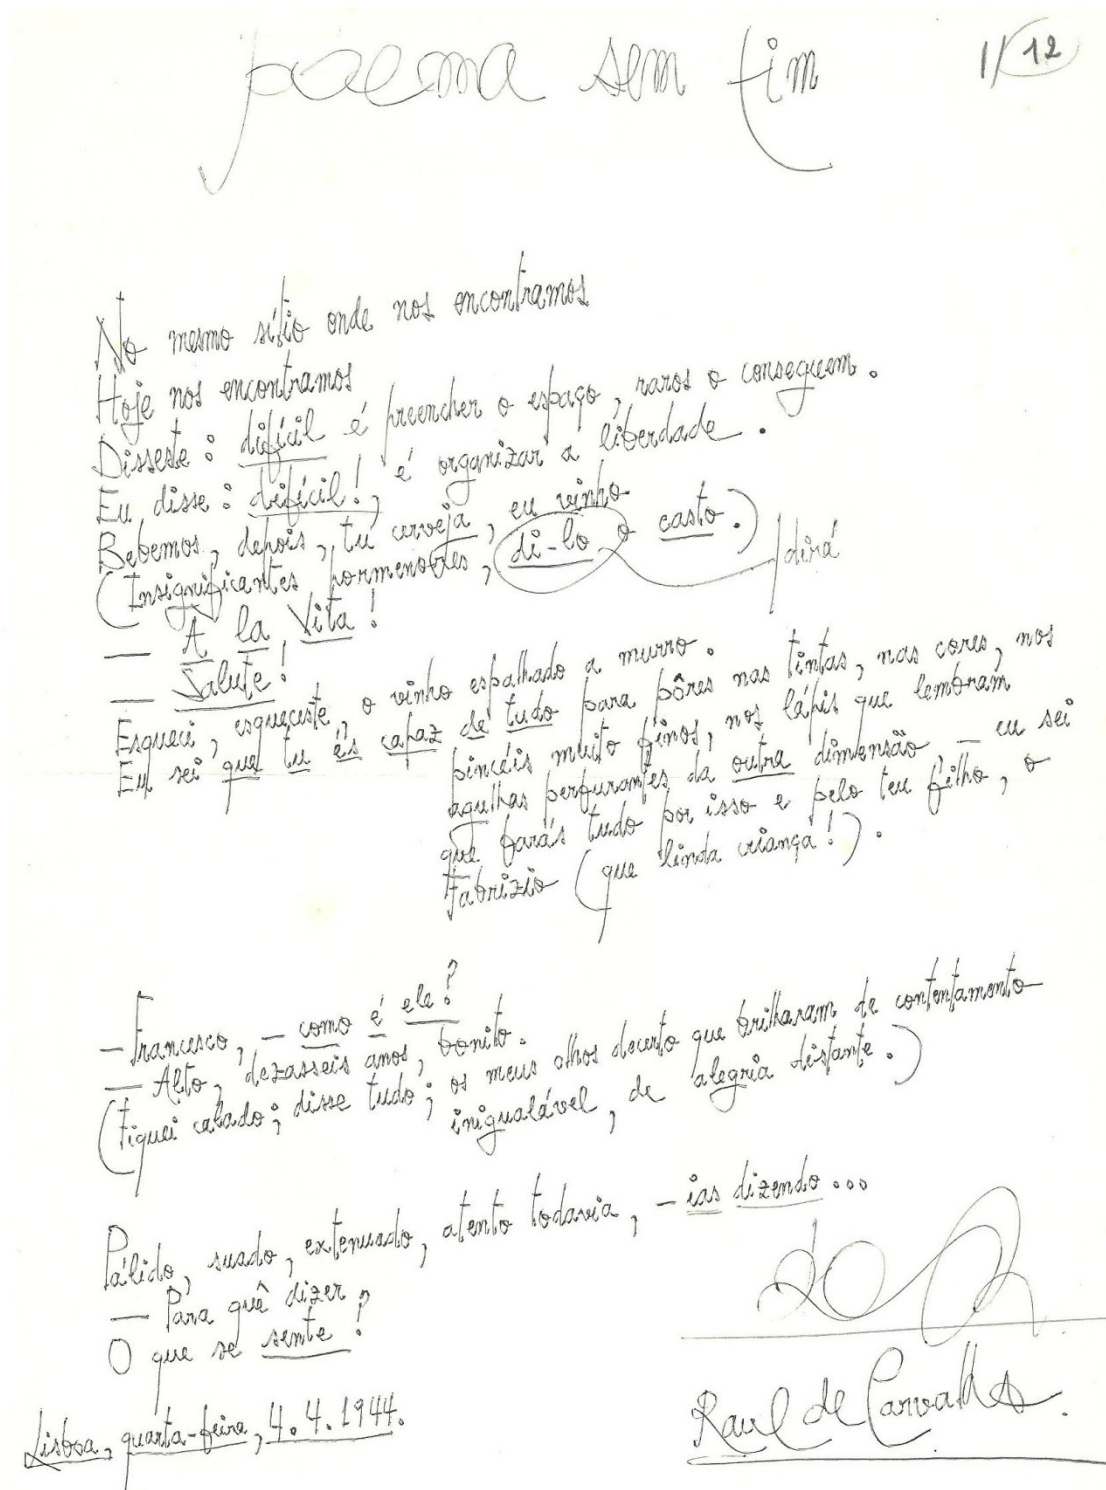 poema sem fim
1/12
No mesmo sítio onde nos encontramos
Hoje nos encontramos
Disseste: difícil é preencher o espaço, raros o conseguem.
Eu disse: difícil!, é organizar a liberdade.
Bebemos, depois, tu cerveja, eu vinho
(Insignificantes pormenores, di-lo o casto.)
dirá
— A la Vita!
— Salute!
Esqueci, esqueceste, o vinho espalhado a murro.
Eu sei que tu és capaz de tudo para pôres nas tintas, nas cores, nos
pincéis muito finos, nos lápis que lembram
agulhas perfurantes da outra dimensão, — eu sei
que farás tudo por isso e pelo teu filho, o
Fabrizio (que linda criança!).
— Francesco, — como é ele?
— Alto, dezasseis anos, bonito.
(Fiquei calado; disse tudo; os meus olhos decerto que brilharam de contentamento
inigualável, de alegria distante.)
Pálido, suado, extenuado, atento todavia, — ias dizendo...
— Para quê dizer
O que se sente?
Lisboa, quarta-feira, 4.4.1944.
Raul de Carvalho